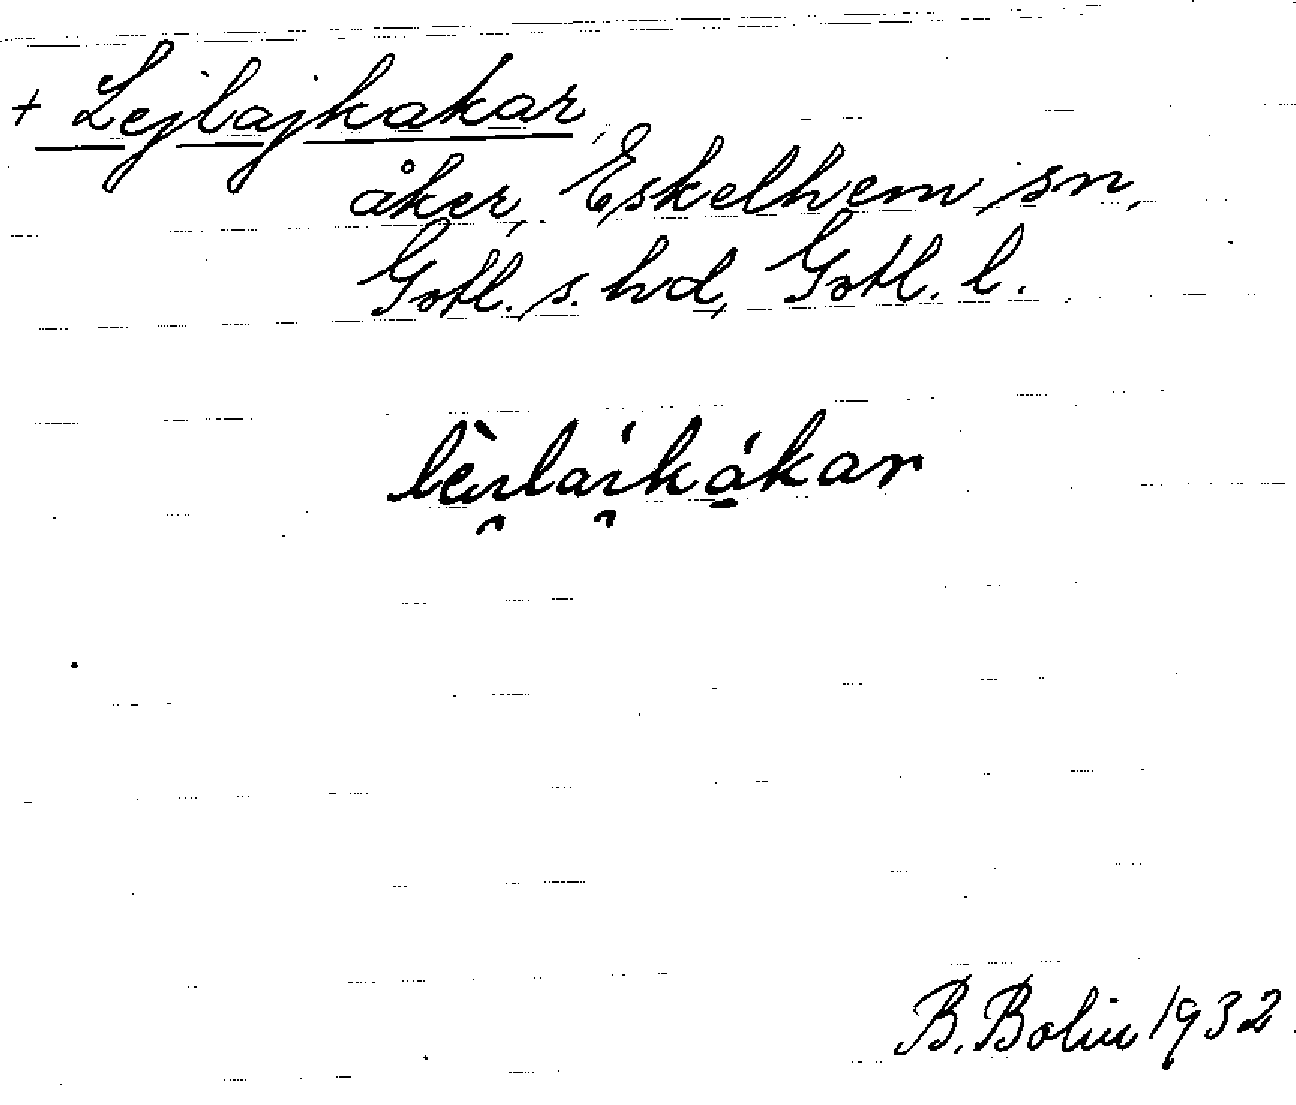 + Lejlajkakar,
åker, Eskelhem sn,
Gotl. s. hd, Gotl. l.
lèi̯lai̯kákar
B. Bolin 1932.